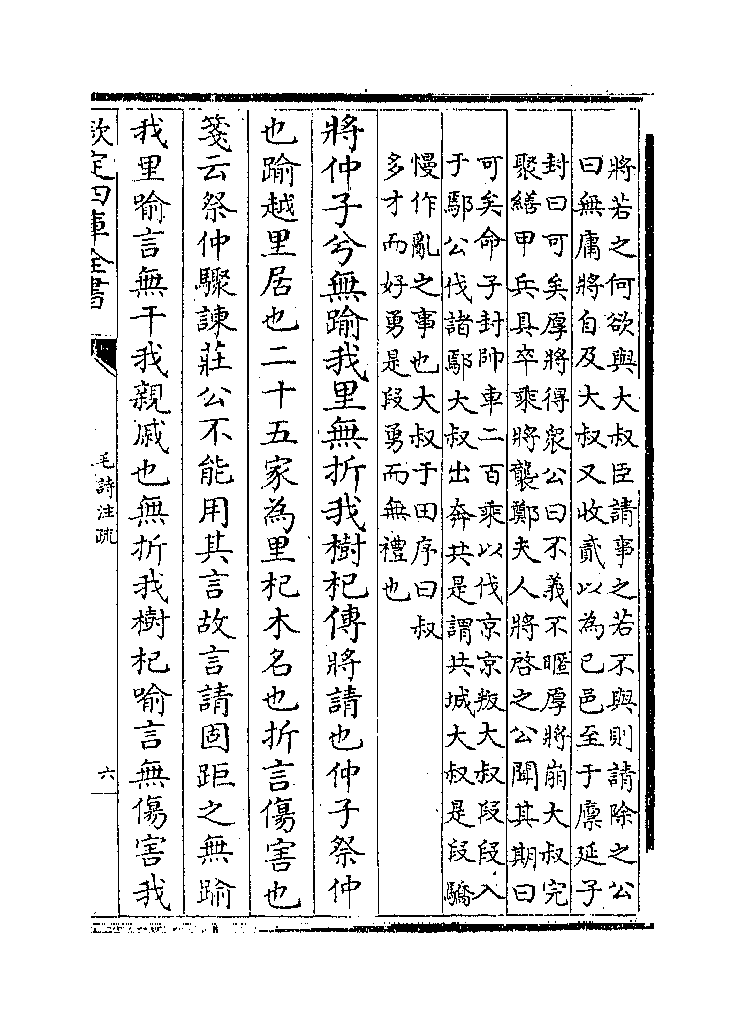 將若之何欲與大叔臣請事之若不與則請除之公
曰無庸將自及大叔又收貳以為己邑至于廩延子
封曰可矣厚將得衆公曰不義不暱厚將崩大叔完
聚繕甲兵具卒乘將襲鄭夫人將啓之公聞其期曰
可矣命子封帥車二百乘以伐京京叛大叔段段入
于鄢公伐諸鄢大叔出奔共是謂共城大叔是段驕
慢作亂之事也大叔于田序曰叔
多才而好勇是段勇而無禮也
將仲子兮無踰我里無折我樹杞傳將請也仲子祭仲
也踰越里居也二十五家為里杞木名也折言傷害也
箋云祭仲驟諫莊公不能用其言故言請固距之無踰
我里喻言無干我親戚也無折我樹杞喻言無傷害我
欽定四庫全書
毛詩注疏
六